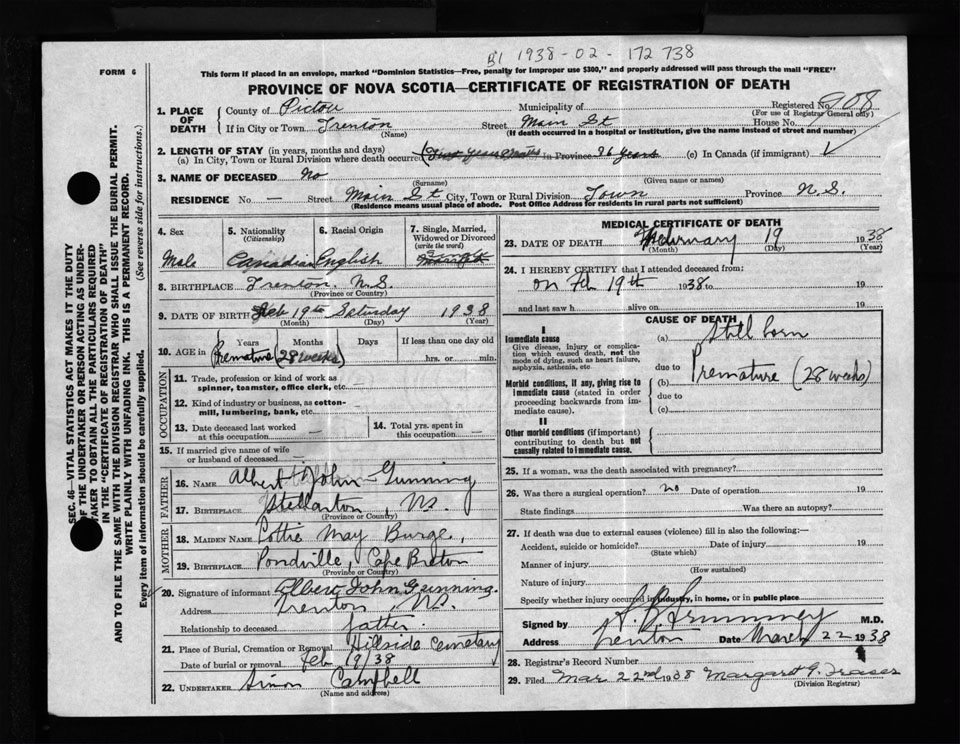 B1 1938-02-172738
FORM 6
This form if placed in an envelope, marked "Dominion Statistics—Free, penalty for improper use $300," and properly addressed will pass through the mail "FREE"
PROVINCE OF NOVA SCOTIA—CERTIFICATE OF REGISTRATION OF DEATH
1. PLACE OF DEATH
County of Pictou Municipality of Registered No. 908
(For use of Registrar General only)
If in City or Town Trenton Street Main St House No.
(Name) (If death occurred in a hospital or institution, give the name instead of street and number)
2. LENGTH OF STAY (in years, months and days)
(a) In City, Town or Rural Division where death occurred in Province 36 years (c) In Canada (if immigrant)
3. NAME OF DECEASED No
(Surname) (Given name or names)
RESIDENCE No — Street Main St City, Town or Rural Division Town Province N.S.
(Residence means usual place of abode. Post Office Address for residents in rural parts not sufficient)
SEC. 46—VITAL STATISTICS ACT MAKES IT THE DUTY
OF THE UNDERTAKER OR PERSON ACTING AS UNDER-
TAKER TO OBTAIN ALL THE PARTICULARS REQUIRED
IN THE "CERTIFICATE OF REGISTRATION OF DEATH"
AND TO FILE THE SAME WITH THE DIVISION REGISTRAR WHO SHALL ISSUE THE BURIAL PERMIT.
WRITE PLAINLY WITH UNFADING INK. THIS IS A PERMANENT RECORD.
Every item of information should be carefully supplied. (See reverse side for instructions.)
4. Sex
Male
5. Nationality
(Citizenship)
Canadian
6. Racial Origin
English
7. Single, Married,
Widowed or Divorced
(write the word)
8. BIRTHPLACE Trenton N.S.
(Province or Country)
9. DATE OF BIRTH Feb 19th Saturday 1938
(Month) (Day) (Year)
10. AGE in Years Months Days If less than one day old
Premature (28 weeks) hrs. or min.
OCCUPATION
11. Trade, profession or kind of work as
spinner, teamster, office clerk, etc.
12. Kind of industry or business, as cotton-
mill, lumbering, bank, etc.
13. Date deceased last worked
at this occupation —
14. Total yrs. spent in
this occupation —
15. If married give name of wife
or husband of deceased —
FATHER
16. NAME Albert John Gunning
17. BIRTHPLACE Stellarton, N.S.
(Province or Country)
MOTHER
18. MAIDEN NAME Lottie May Burge,
19. BIRTHPLACE Pondville, Cape Breton
(Province or Country)
20. Signature of informant Albert John Gunning.
Address Trenton, N.S.
Relationship to deceased father.
21. Place of Burial, Cremation or Removal Hillside Cemetary
Date of burial or removal Feb 19/38
22. UNDERTAKER Simon Campbell
(Name and address)
MEDICAL CERTIFICATE OF DEATH
23. DATE OF DEATH February 19 1938
(Month) (Day) (Year)
24. I HEREBY CERTIFY that I attended deceased from:
on Feb 19th 1938 to 19
and last saw h alive on 19
CAUSE OF DEATH
I
Immediate cause
Give disease, injury or complica-
tion which caused death, not the
mode of dying, such as heart failure,
asphyxia, asthenia, etc.
(a) Still born
due to
Morbid conditions, if any, giving rise to
immediate cause (stated in order
proceeding backwards from im-
mediate cause).
(b) Premature (28 weeks)
due to
(c)
II
Other morbid conditions (if important)
contributing to death but not
causally related to immediate cause.
25. If a woman, was the death associated with pregnancy?
26. Was there a surgical operation? no Date of operation 19
State findings Was there an autopsy?
27. If death was due to external causes (violence) fill in also the following:—
Accident, suicide or homicide? Date of injury 19
(State which)
Manner of injury
(How sustained)
Nature of injury
Specify whether injury occurred in industry, in home, or in public place
Signed by M.D.
Address Trenton Date March 22 1938
28. Registrar's Record Number
29. Filed Mar. 22nd 1938 Margaret Fraser
(Division Registrar)